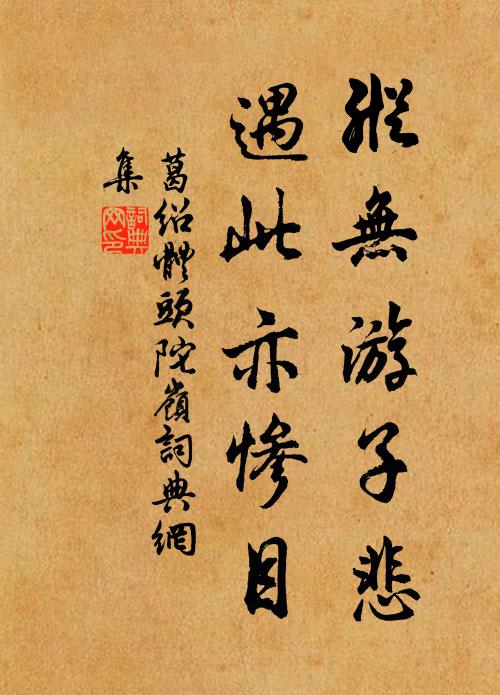 縱無游子悲
遇此亦慘目
葛紹體頭陀嶺詞典網
集
詞典
網印